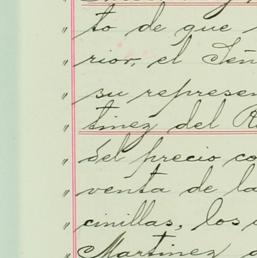 " to de que
" rior, el Señ
" su represen
" tinez del R
" del precio co
" venta de la
" cinillas, los
" Martinez